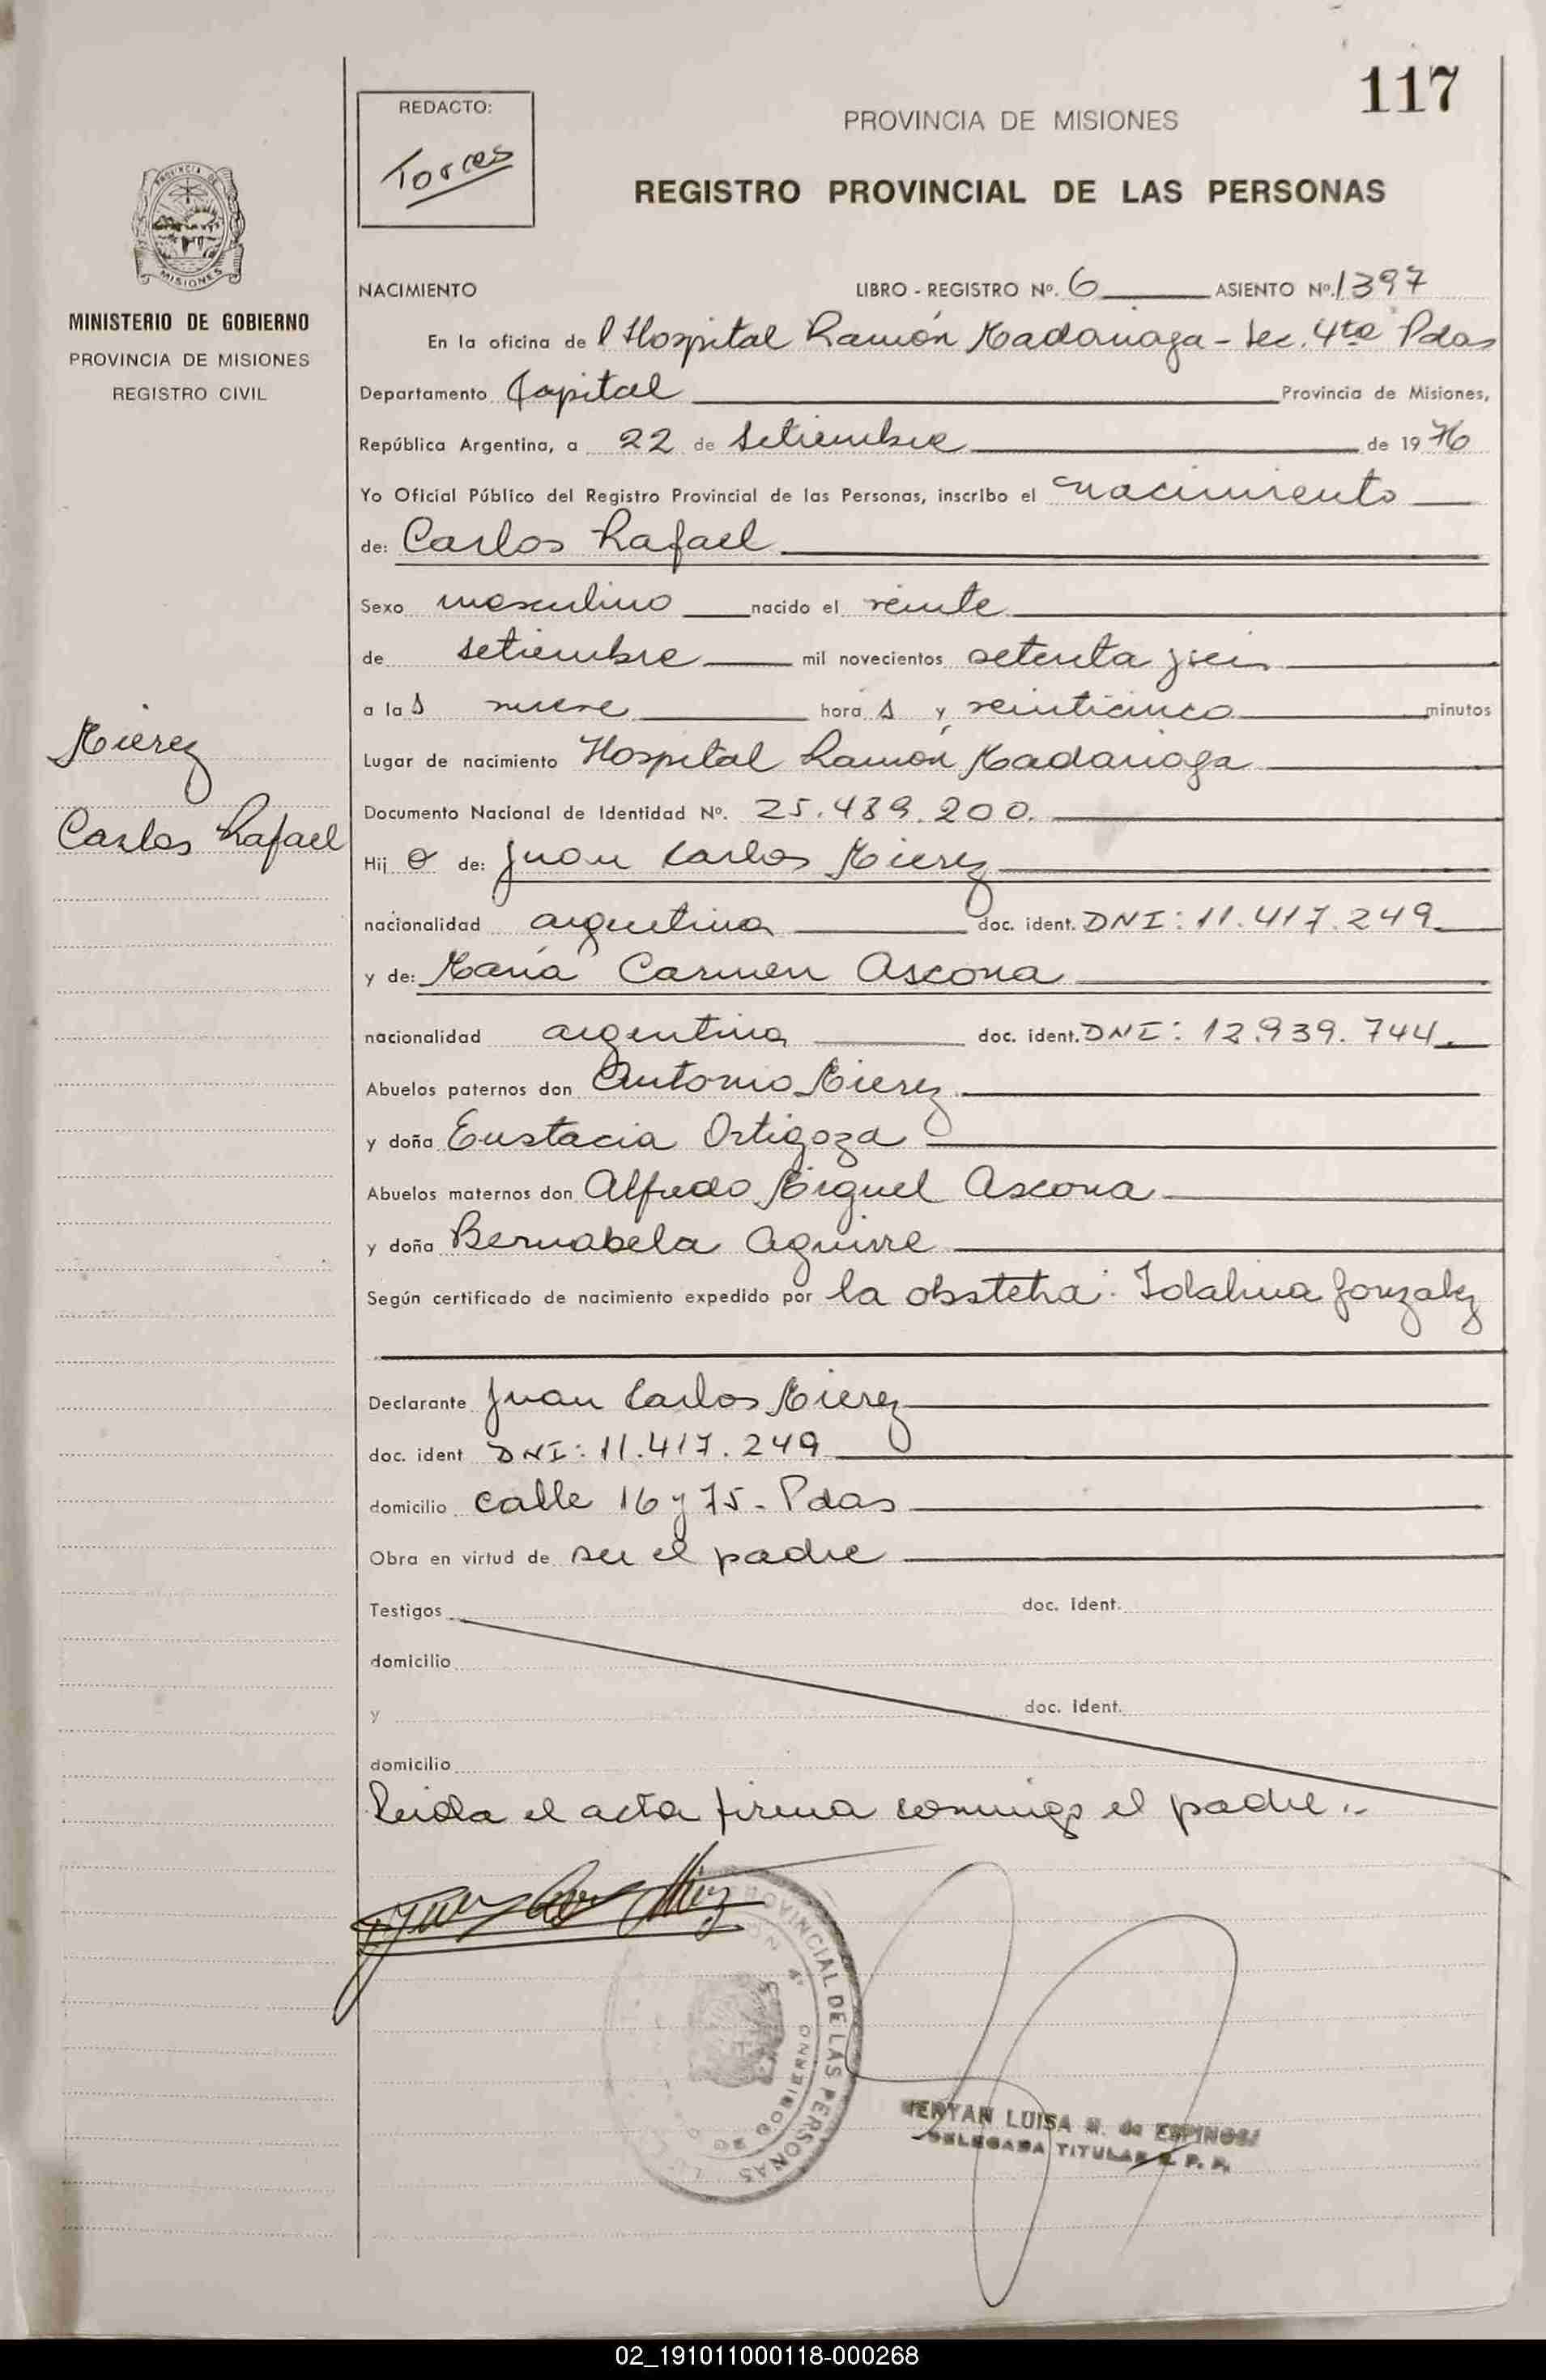 117
REDACTO:
Torres
PROVINCIA DE MISIONES
REGISTRO PROVINCIAL DE LAS PERSONAS
MISIONES
MINISTERIO DE GOBIERNO
PROVINCIA DE MISIONES
REGISTRO CIVIL
NACIMIENTO LIBRO - REGISTRO Nº. 6 ASIENTO Nº. 1397
En la oficina de l Hospital Ramón Madariaga - Sec. 4ta Pdas
Departamento Capital Provincia de Misiones,
República Argentina, a 22 de setiembre de 1976
Yo Oficial Público del Registro Provincial de las Personas, inscribo el nacimiento
de: Carlos Rafael
Sexo masculino nacido el veinte
de setiembre mil novecientos setenta y seis
a las nueve horas y veinticinco minutos
Mierez
Carlos Rafael
Lugar de nacimiento Hospital Ramón Madariaga
Documento Nacional de Identidad Nº. 25.489.200.
Hijo de: Juan Carlos Mierez
nacionalidad argentina doc. ident. DNI: 11.417.249
y de: María Carmen Ascona
nacionalidad argentina doc. ident. DNI: 12.939.744.
Abuelos paternos don Antonio Mierez
y doña Eustacia Ortigoza
Abuelos maternos don Alfredo Miguel Ascona
y doña Bernabela Aguirre
Según certificado de nacimiento expedido por la obstetra: Idalina Gonzalez
Declarante Juan Carlos Mierez
doc. ident DNI: 11.417.249
domicilio calle 16 y 75 - Pdas
Obra en virtud de ser el padre
Testigos doc. ident.
domicilio
y doc. ident.
domicilio
Leida el acta firma conmigo el padre.-
PROVINCIAL DE LAS PERSONAS
LUISA M. de ESPINOSA
DELEGADA TITULAR R. P. P.
02_191011000118-000268